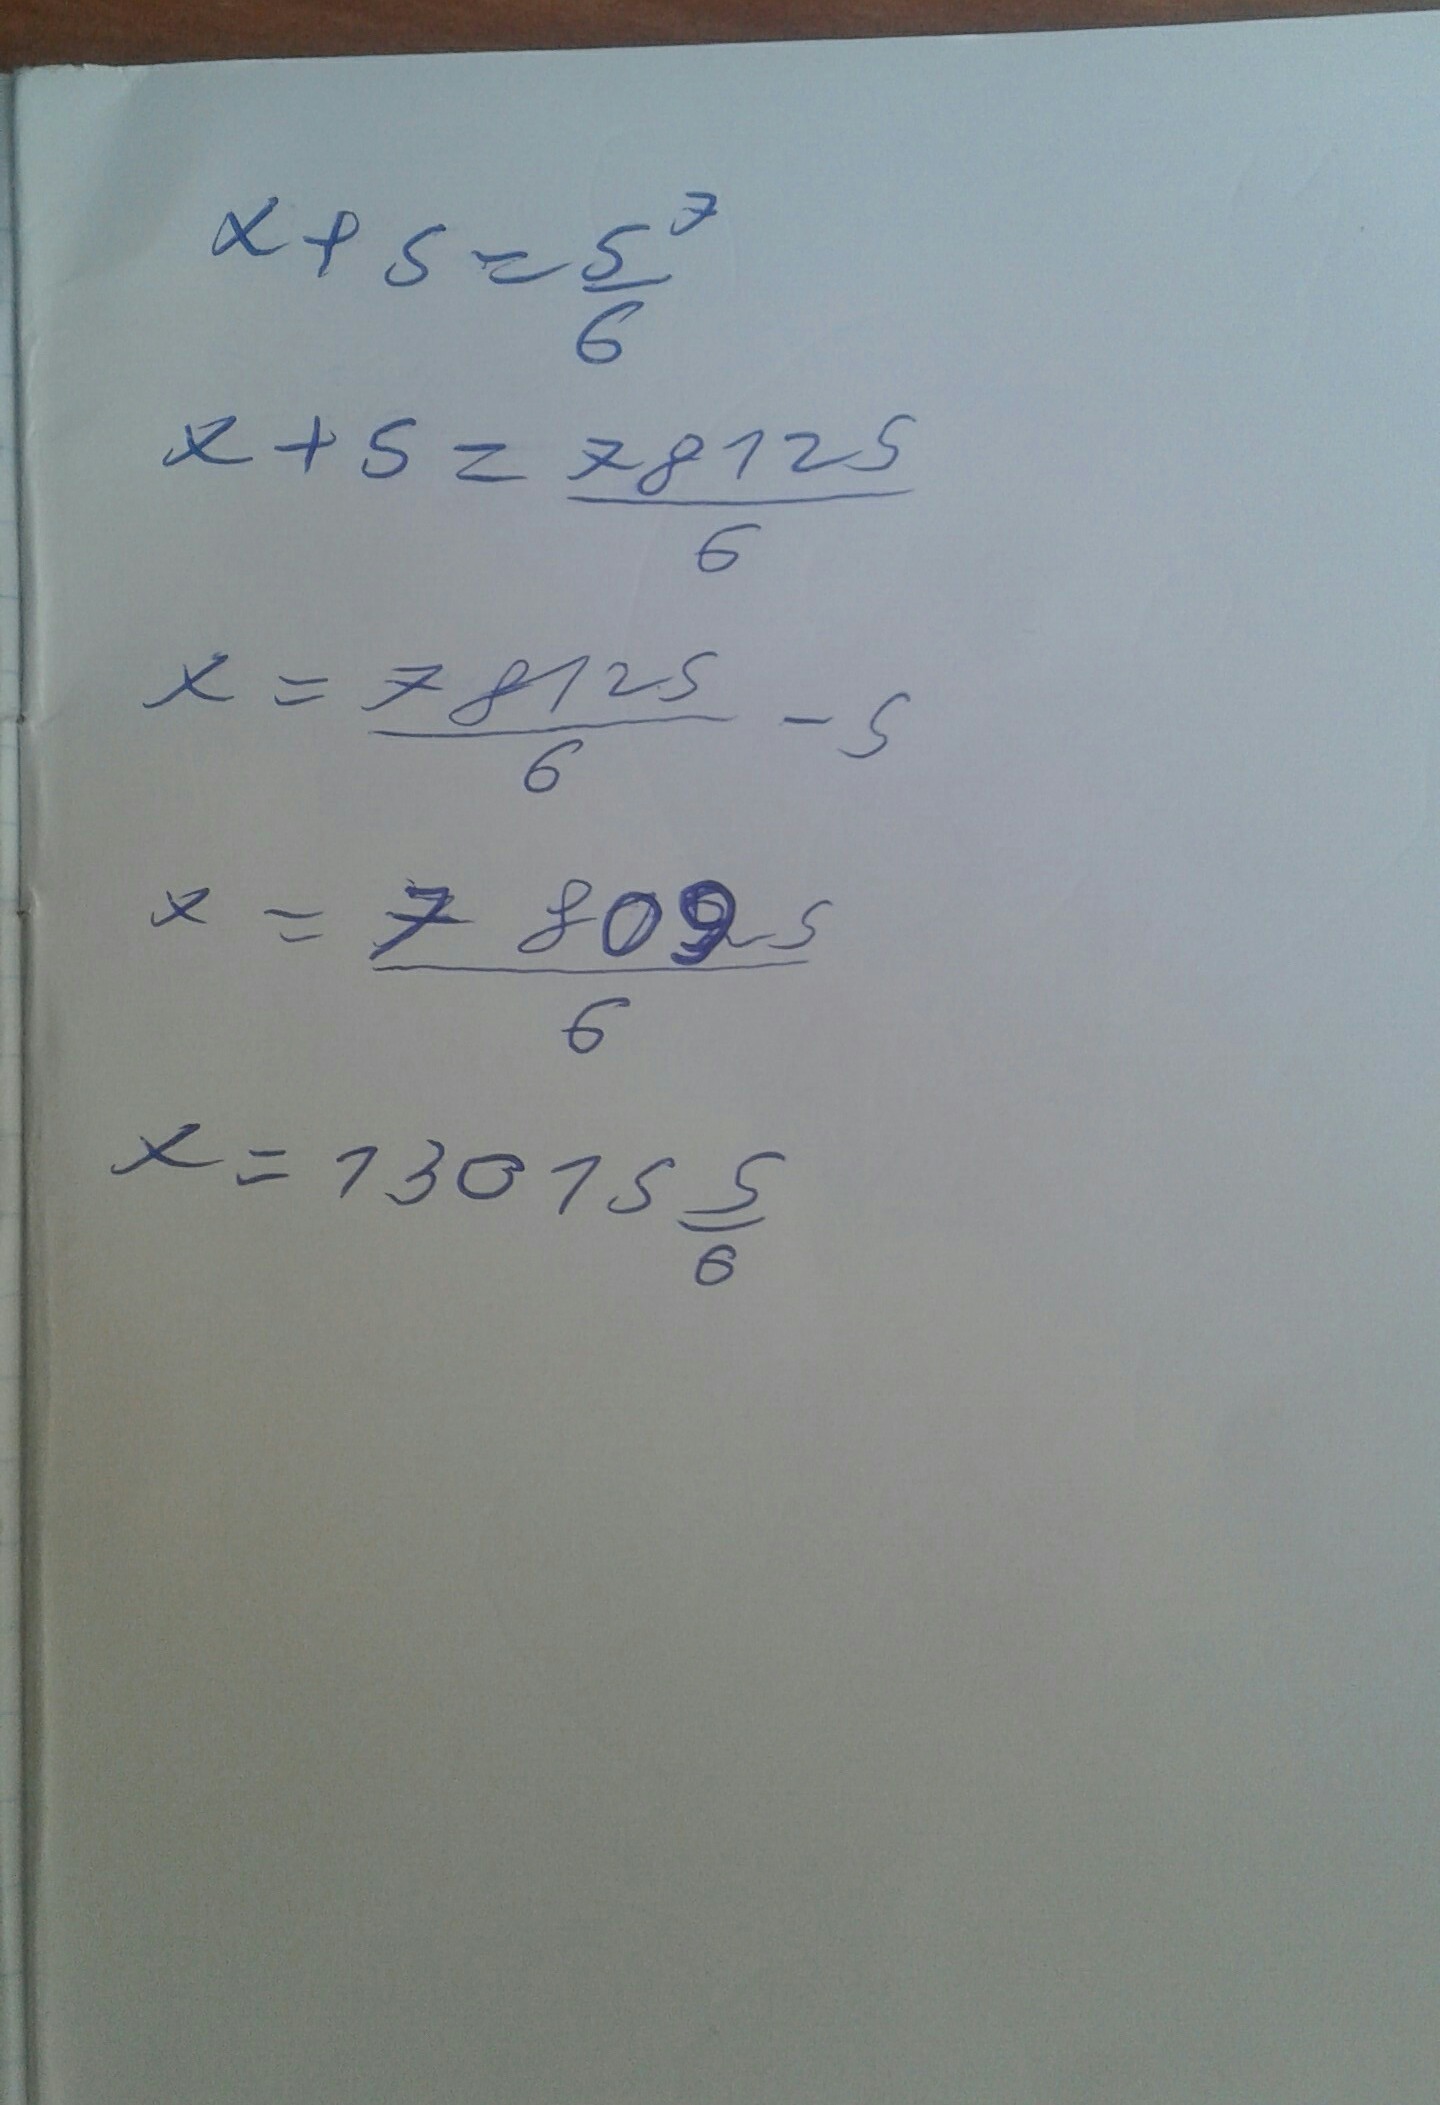 x + 5 = 5^7/6
x + 5 = 78125/6
x = 78125/6 - 5
x = 78095/6
x = 13015 5/6